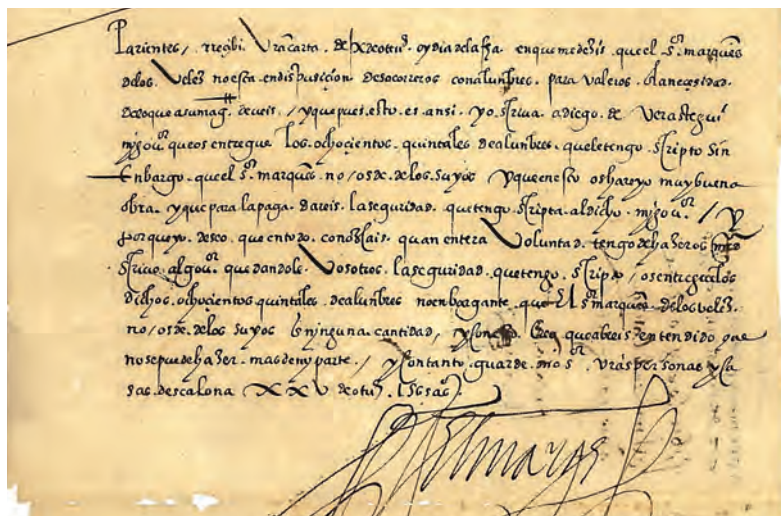 Parientes, / rreçibi. Vra carta. de ix de otue. oy dia de la fha en que me dezis que el S.or marques
delos. Velez no esta. en dispusiçion de socorreros con alunbres. para valeros. dla neçesidad.
de lo que a su mag. deveis. / y que pues. esto. es. ansi. yo scriva. a diego. de Verastegui
mj gou.or que os entregue los. ochoçientos. quintales de alunbres. que le tengo. scripto sin
Enbargo. que el S.or marques no / os de. de los. suyos y que en esto os hare yo muy buena
obra. y que para la paga. dareis. la seguridad. que tengo. scripta. al dicho. mj gou.or / y
porque yo. deseo. que en todo. conozcais. quan entera Voluntad. tengo de hazeros mrd
scrivo. al gou.or que dandole. Vosotros. la seguridad. que tengo. scripto / os entregue los
dichos. ochoçientos quintales. de alunbres no enbargante. que El S.or marques delos velez.
no / os de. de los suyos ninguna. cantidad, / y Con Creo que abreis. entendido que
no se puede hazer. mas de my parte. / y Con tanto. guarde. n.ro S.or Vras personas y Ca
sas. de scalona XXV de otue. 1565 as.
El marques